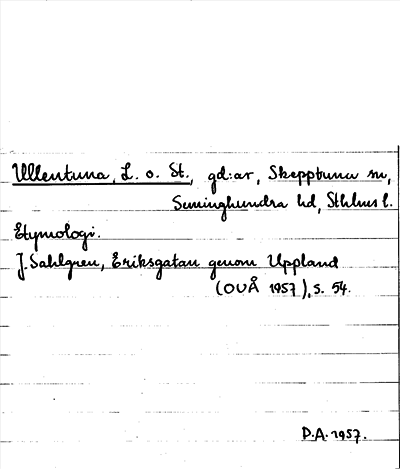 Ullentuna, L. o. St., gd:ar, Skepptuna sn,
Seminghundra hd, Sthlms l.
Etymologi.
J. Sahlgren, Eriksgatan genom Uppland
(OUÅ 1957), s. 54.
P.A. 1957.